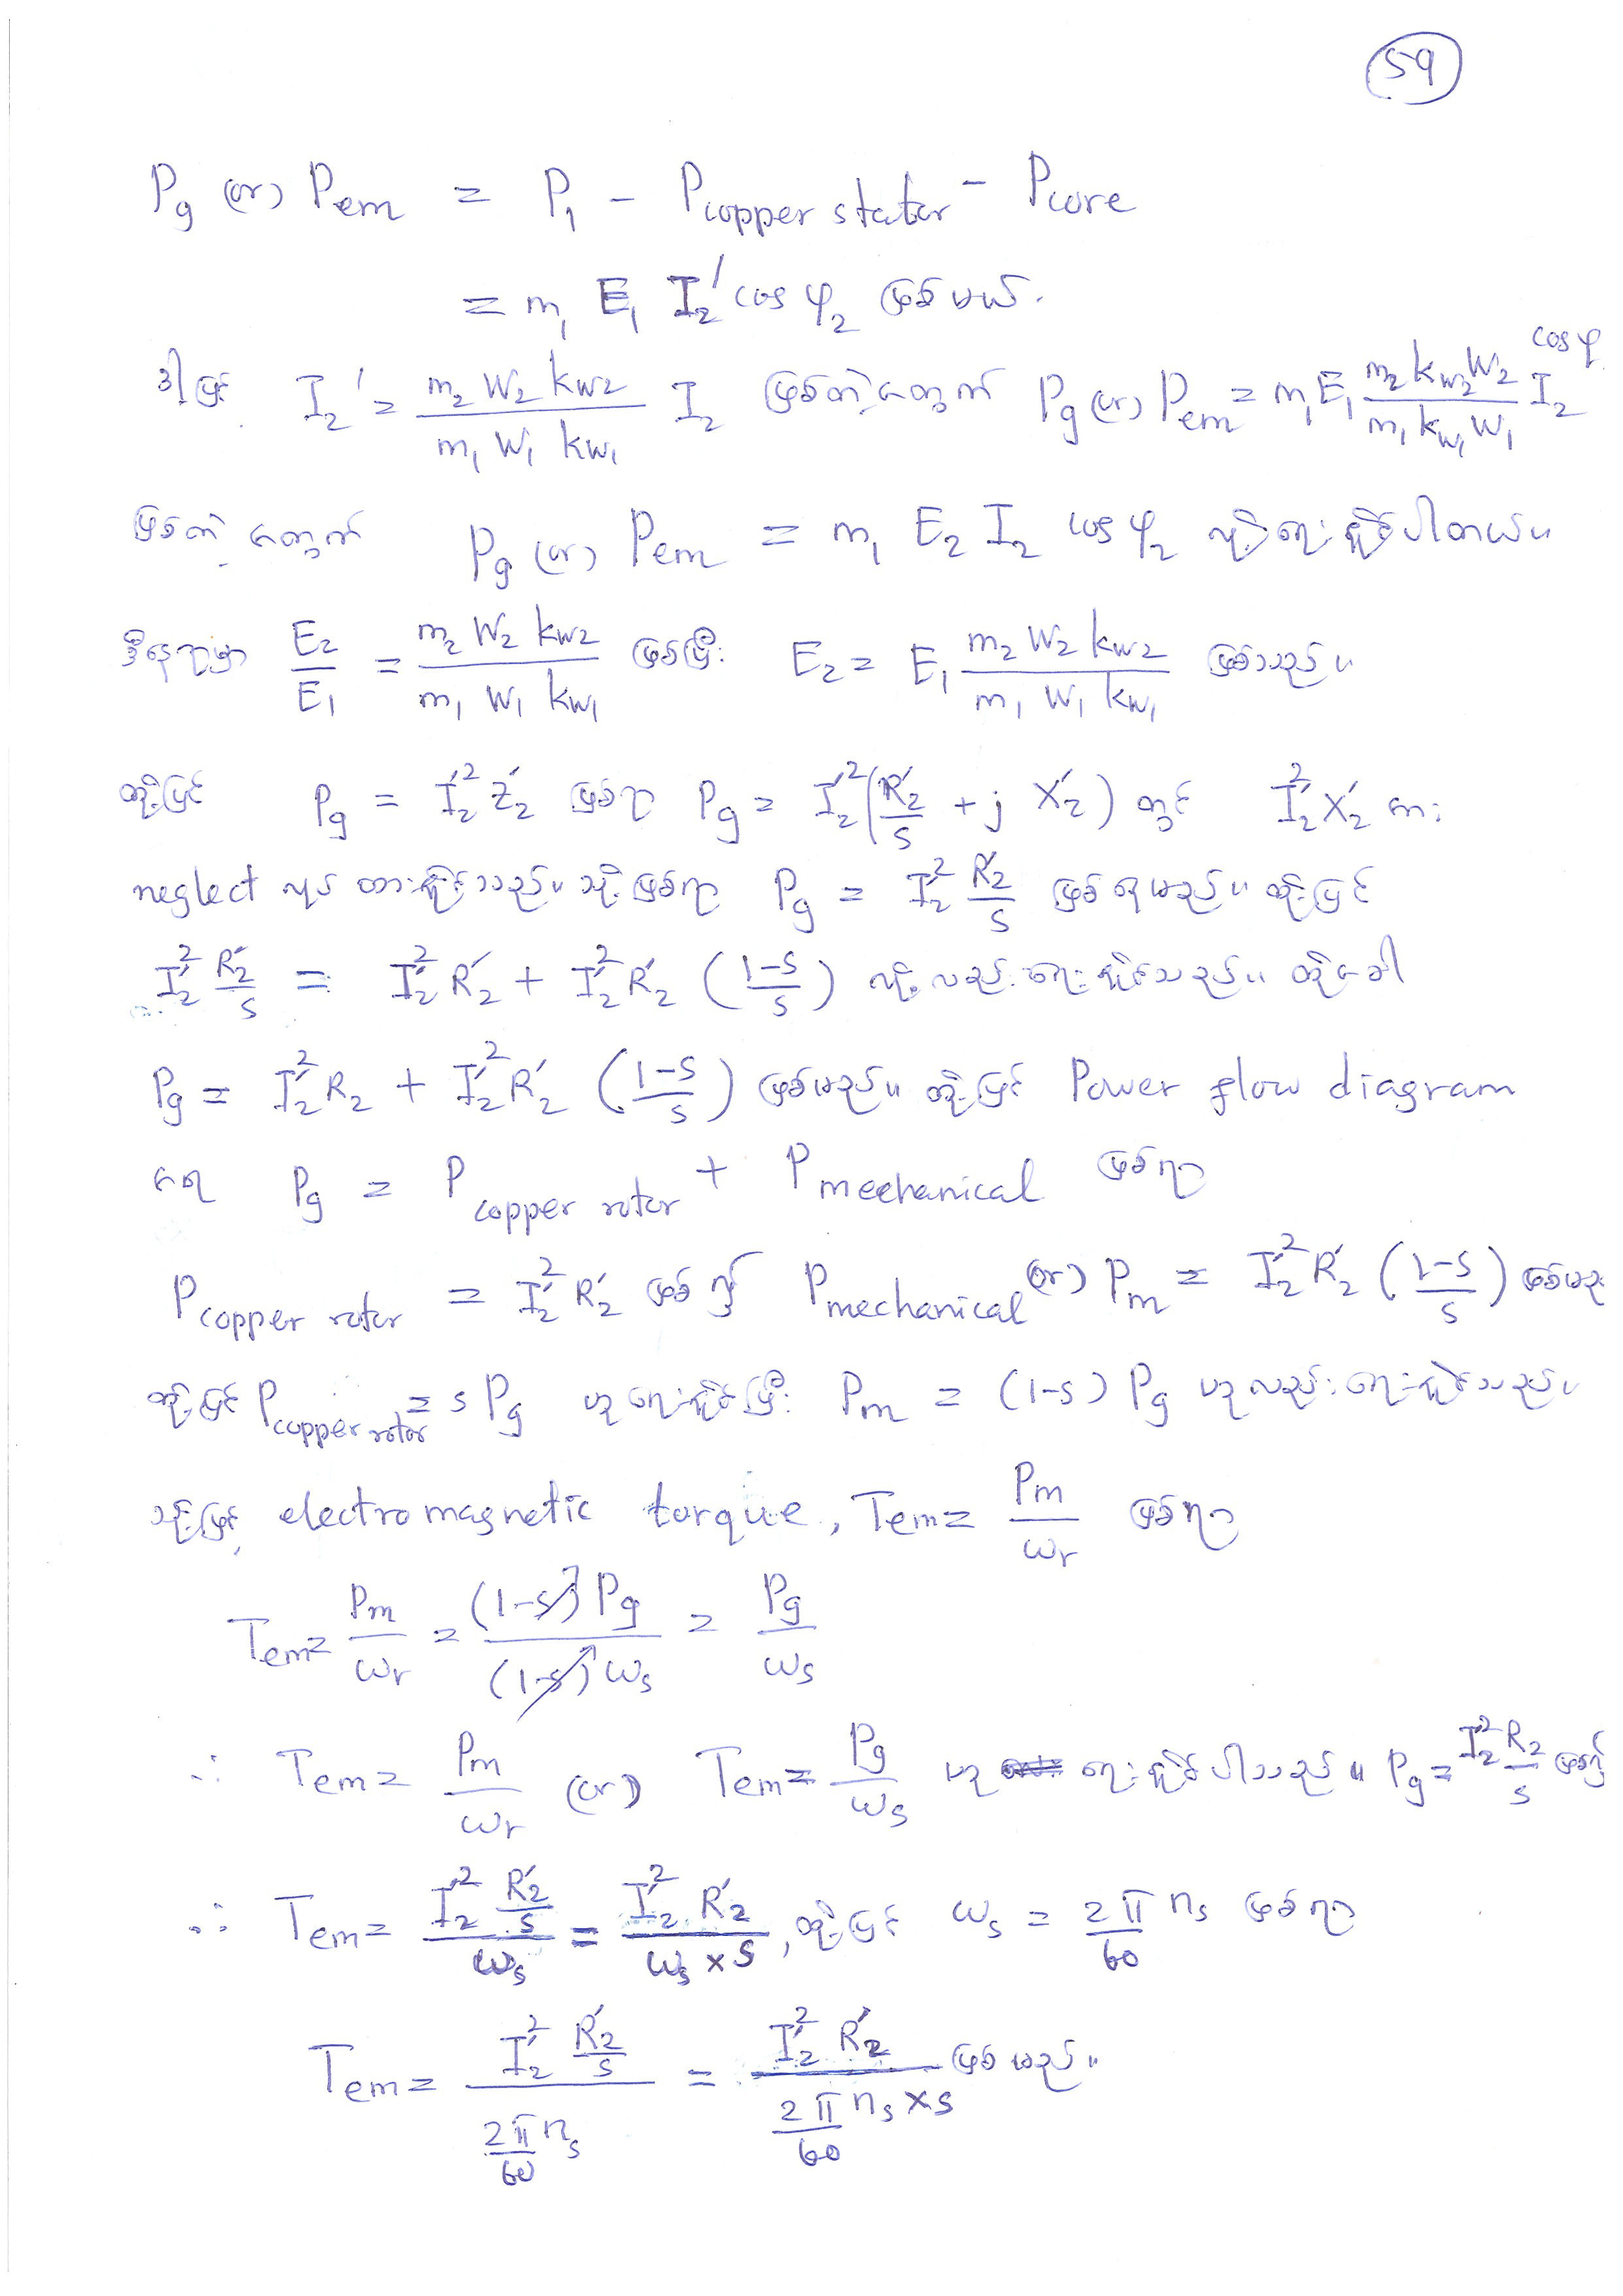 59
Pg (or) Pem = P₁ - Pcopper stator - Pcore
= m₁ E₁ I₂′ cos φ₂ ဖြစ်မယ်.
ဒါ့ဖြင့် I₂′ = (m₂ W₂ kw₂)/(m₁ W₁ kw₁) I₂ ဖြစ်တဲ့အတွက် Pg (or) Pem = m₁ E₁ (m₂ kw₂ W₂)/(m₁ kw₁ W₁) I₂ cos φ
ဖြစ်တဲ့ အတွက် Pg (or) Pem = m₁ E₂ I₂ cos φ₂ လို့ရေးနိုင်ပါတယ်။
ဒီနေရာမှာ E₂/E₁ = (m₂ W₂ kw₂)/(m₁ W₁ kw₁) ဖြစ်ပြီး E₂ = E₁ (m₂ W₂ kw₂)/(m₁ W₁ kw₁) ဖြစ်သည်။
ထို့ပြင် Pg = I₂′² Z₂′ ဖြစ်ရာ Pg = I₂′² (R₂′/s + j X₂′) တွင် I₂′² X₂′ အား
neglect လုပ် ထားနိုင်သည်။ သို့ဖြစ်ရာ Pg = I₂′² R₂′/s ဖြစ်ရမည်။ ထို့ပြင်
I₂′² R₂′/s = I₂′² R₂′ + I₂′² R₂′ ((1-s)/s) လို့လည်းရေးနိုင်သည်။ ထိုအခါ
Pg = I₂′² R₂ + I₂′² R₂′ ((1-s)/s) ဖြစ်မည်။ ထို့ပြင် Power flow diagram
အရ Pg = Pcopper rotor + Pmechanical ဖြစ်ရာ
Pcopper rotor = I₂′² R₂′ ဖြစ်၍ Pmechanical (or) Pm = I₂′² R₂′ ((1-s)/s) ဖြစ်မည်
ထို့ပြင် Pcopper rotor = s Pg ဟုရေးနိုင်ပြီး Pm = (1-s) Pg ဟုလည်းရေးနိုင်သည်။
သို့ဖြင့် electromagnetic torque, Tem = Pm/ωr ဖြစ်ရာ
Tem = Pm/ωr = ((1-s) Pg)/((1-s) ωs) = Pg/ωs
∴ Tem = Pm/ωr (or) Tem = Pg/ωs ဟု ရေးနိုင်ပါသည်။ Pg = I₂′² R₂/s ဖြစ်၍
∴ Tem = (I₂′² R₂′/s)/ωs = (I₂′² R₂′)/(ωs × s), ထို့ပြင် ωs = (2π/60) ns ဖြစ်ရာ
Tem = (I₂′² R₂′/s)/((2π/60) ns) = (I₂′² R₂′)/((2π/60) ns × s) ဖြစ်မည်။